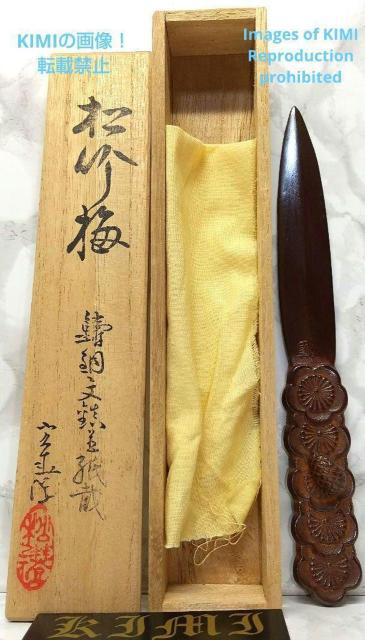 KIMIの画像！
転載禁止
Images of KIMI
Reproduction
prohibited
松竹梅
鋳銅文鎮兼紙截
KIMI